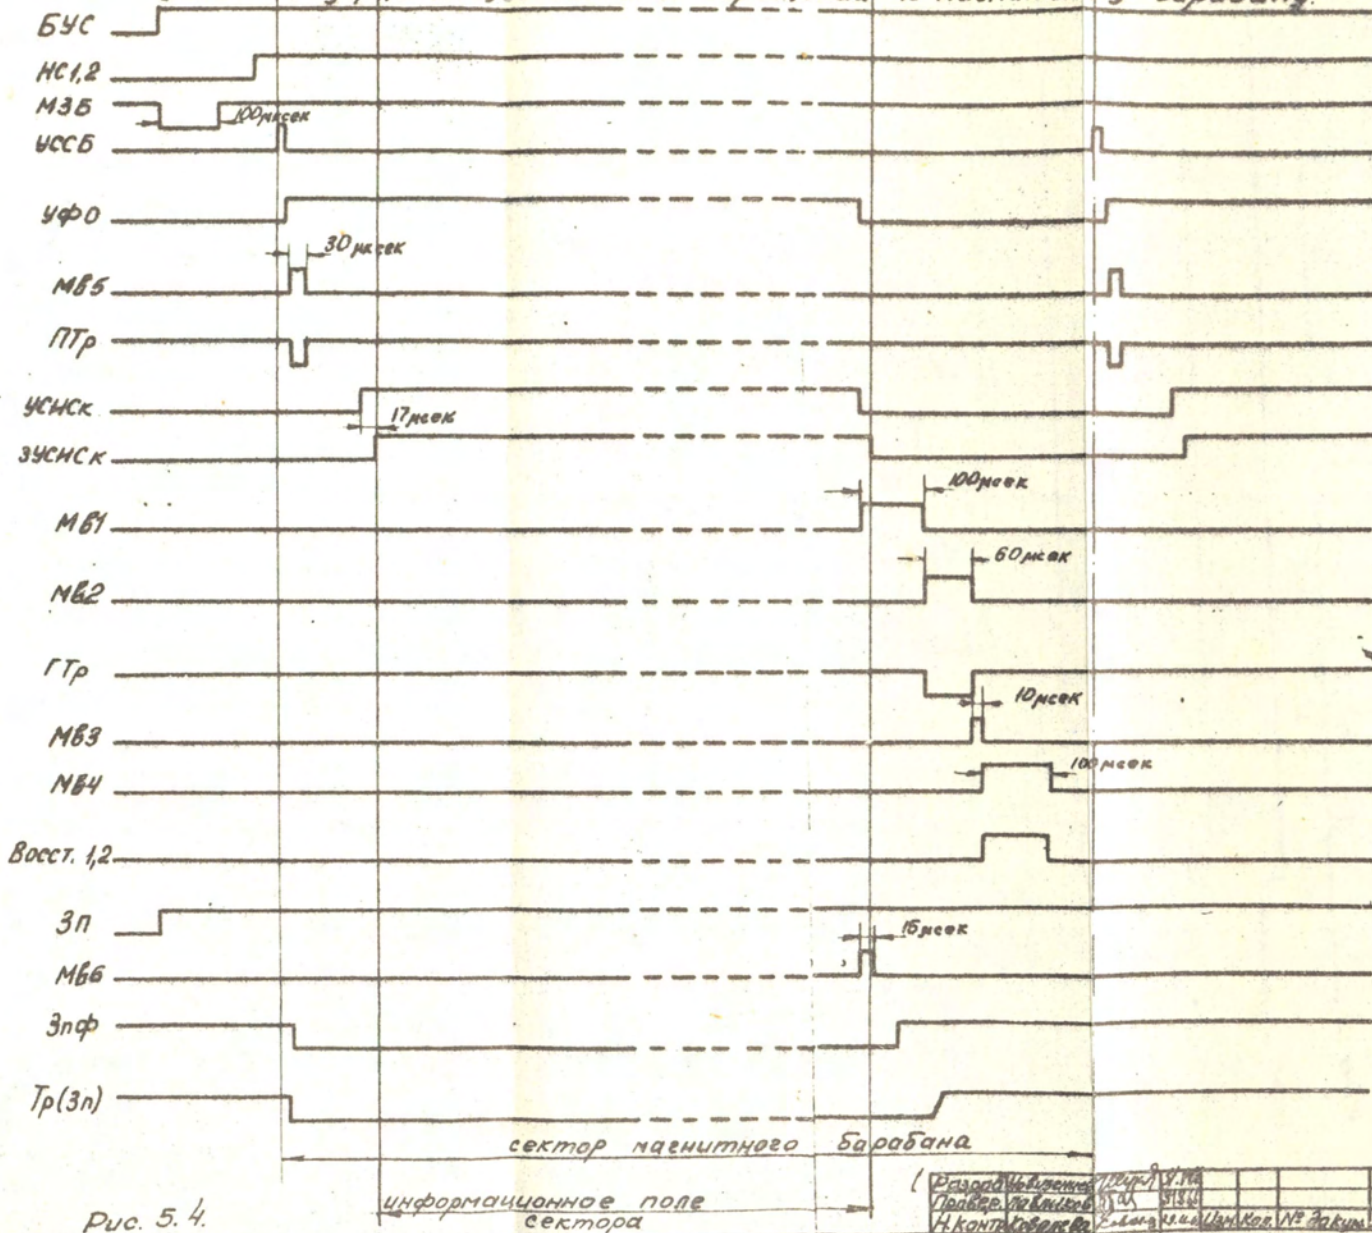 барабану.
БУС
НС1,2
МЗБ
100 мксек
УССБ
УФО
30 мксек
Мв5
ПТр
УСНСк
17 мсек
ЗУСНСк
100 мсек
Мв1
60 мсек
Мв2
ГТр
10 мсек
Мв3
100 мсек
Мв4
Восст. 1,2
Зп
15 мсек
Мв6
Зпф
Тр(Зп)
сектор магнитного барабана
информационное поле
сектора
Рис. 5.4.
Разраб
Провер.
Н.контр Ковалева Изм Кол. № докум